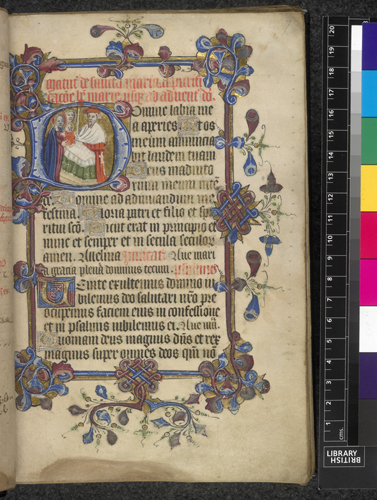 matut' de sancta maria a purifi
cacōe be marie usq; ad aduent' dñi.
Domine labia me
a aperies Et os
meum annuncia
bit laudem tuam
Deus in adiuto
rium meum inten
de Domine ad adiuuandum me
festina Gloria patri et filio et spi
ritui sc̄o Sicut erat in principio et
nunc et semper et in secula seculoꝝ
amen. Alleluia. Aue mari
a gracia plena dominus tecum.
Venite exultemus domino iu
bilemus deo salutari nr̄o pre
occupemus faciem eius in confessione
et in psalmis iubilemus ei. Aue ma.
Quoniam deus magnus dn̄s et rex
magnus super omnes deos qm̄ nō
cms.
1
2
3
4
5
6
7
8
9
10
11
12
13
14
15
16
17
18
19
20
BRITISH
LIBRARY